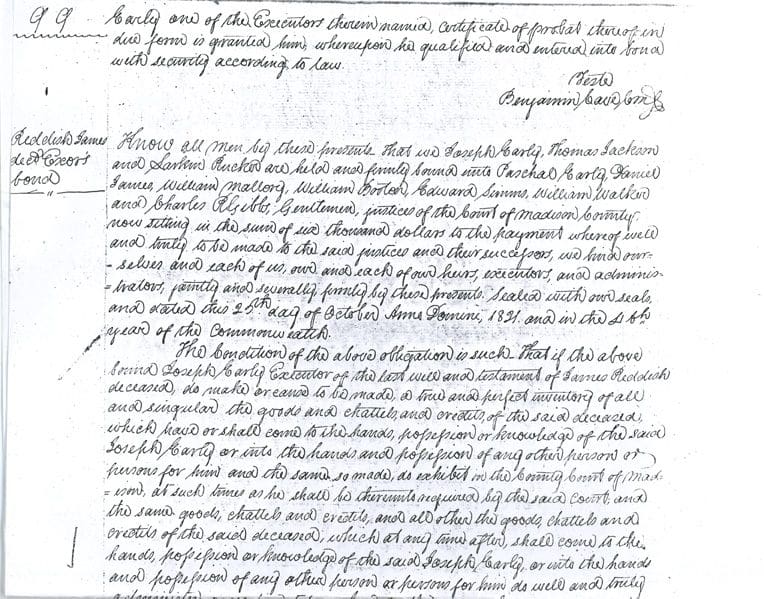 99
Early one of the Executors therein named, Certificate of probat thereof in
due form is granted him, whereupon he qualified and entered into bond
with security according to law.
Teste
Benjamin Cave, Com Clk
Reddish James
decd Excors
bond
Know all men by these presents that we Joseph Early, Thomas Jackson
and Larkin Rucker are held and firmly bound unto Paschal Early, Daniel
James, William Mallory, William Booton, Edward Simms, William Walker
and Charles R. Gibbs, Gentlemen, justices of the Court of Madison County
now sitting in the sum of six thousand dollars to the payment whereof well
and truly to be made to the said justices and their successors, we bind our-
-selves and each of us, our and each of our heirs, executors, and adminis-
=trators, jointly and severally, firmly by these presents. Sealed with our seals,
and dated this 25th day of October Anno Domini, 1821. and in the 46th
year of the Commonwealth.
The Condition of the above obligation is such that if the above
bound Joseph Early Executor of the last will and testament of James Reddish
deceased, do make or cause to be made, a true and perfect inventory of all
and singular the goods and chattels, and credits, of the said deceased,
which have or shall come to the hands, possession or knowledge of the said
Joseph Early or into the hands and possession of any other person or
persons for him and the same so made, do exhibit in the County Court of Mad-
=ison, at such times as he shall be thereunto required by the said Court, and
the same goods, chattels and credits, and all other the goods, chattels and
credits of the said deceased, which at any time after, shall come to the
hands, possession or knowledge of the said Joseph Early, or into the hands
and possession of any other person or persons for him do well and truly